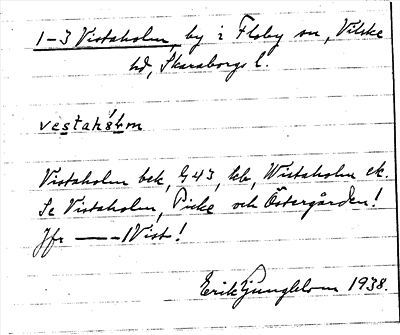 1-3 Vistaholm, by i Floby sn, Vilske
hd, Skaraborgs l.
vestahålm
Vistaholm bek, G43, hb, Wistaholm ek.
Se Vistaholm, Picke och Östergården!
Jfr —— 1 Vist!
Erik Ljungblom 1938.